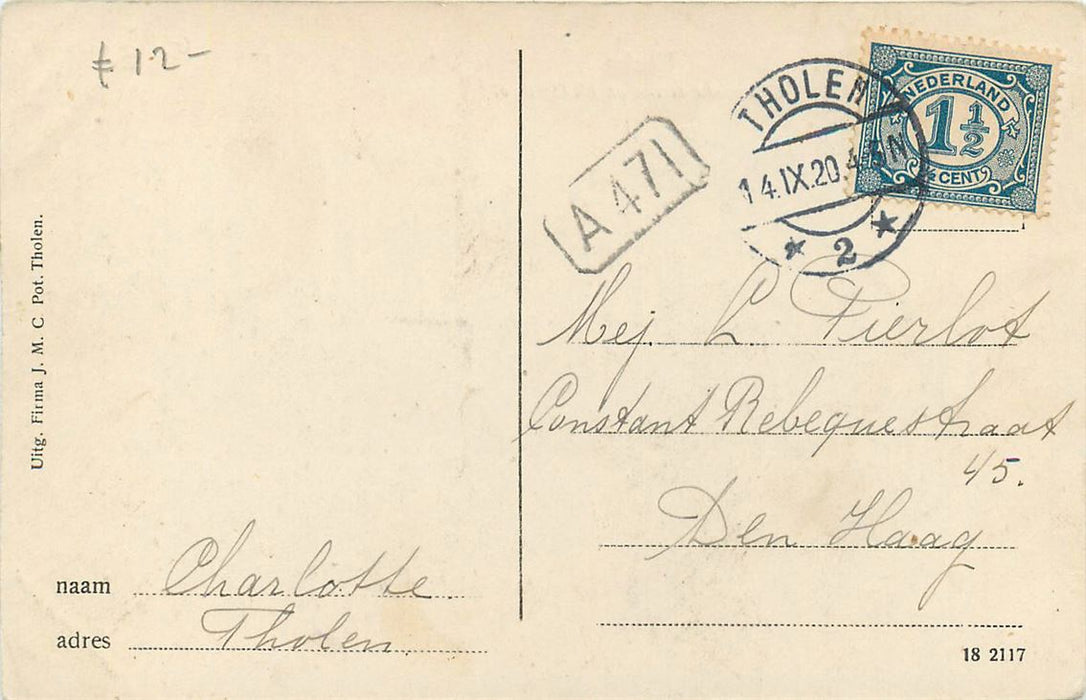 ƒ 12-
Uitg. Firma J. M. C Pot. Tholen.
naam Charlotte.
adres Tholen
A 471
THOLEN
14.IX.20.4-5N
* 2 *
NEDERLAND
1 1/2
CENT
Mej L. Pierlot
Constant Rebequestraat
45.
Den Haag
18 2117